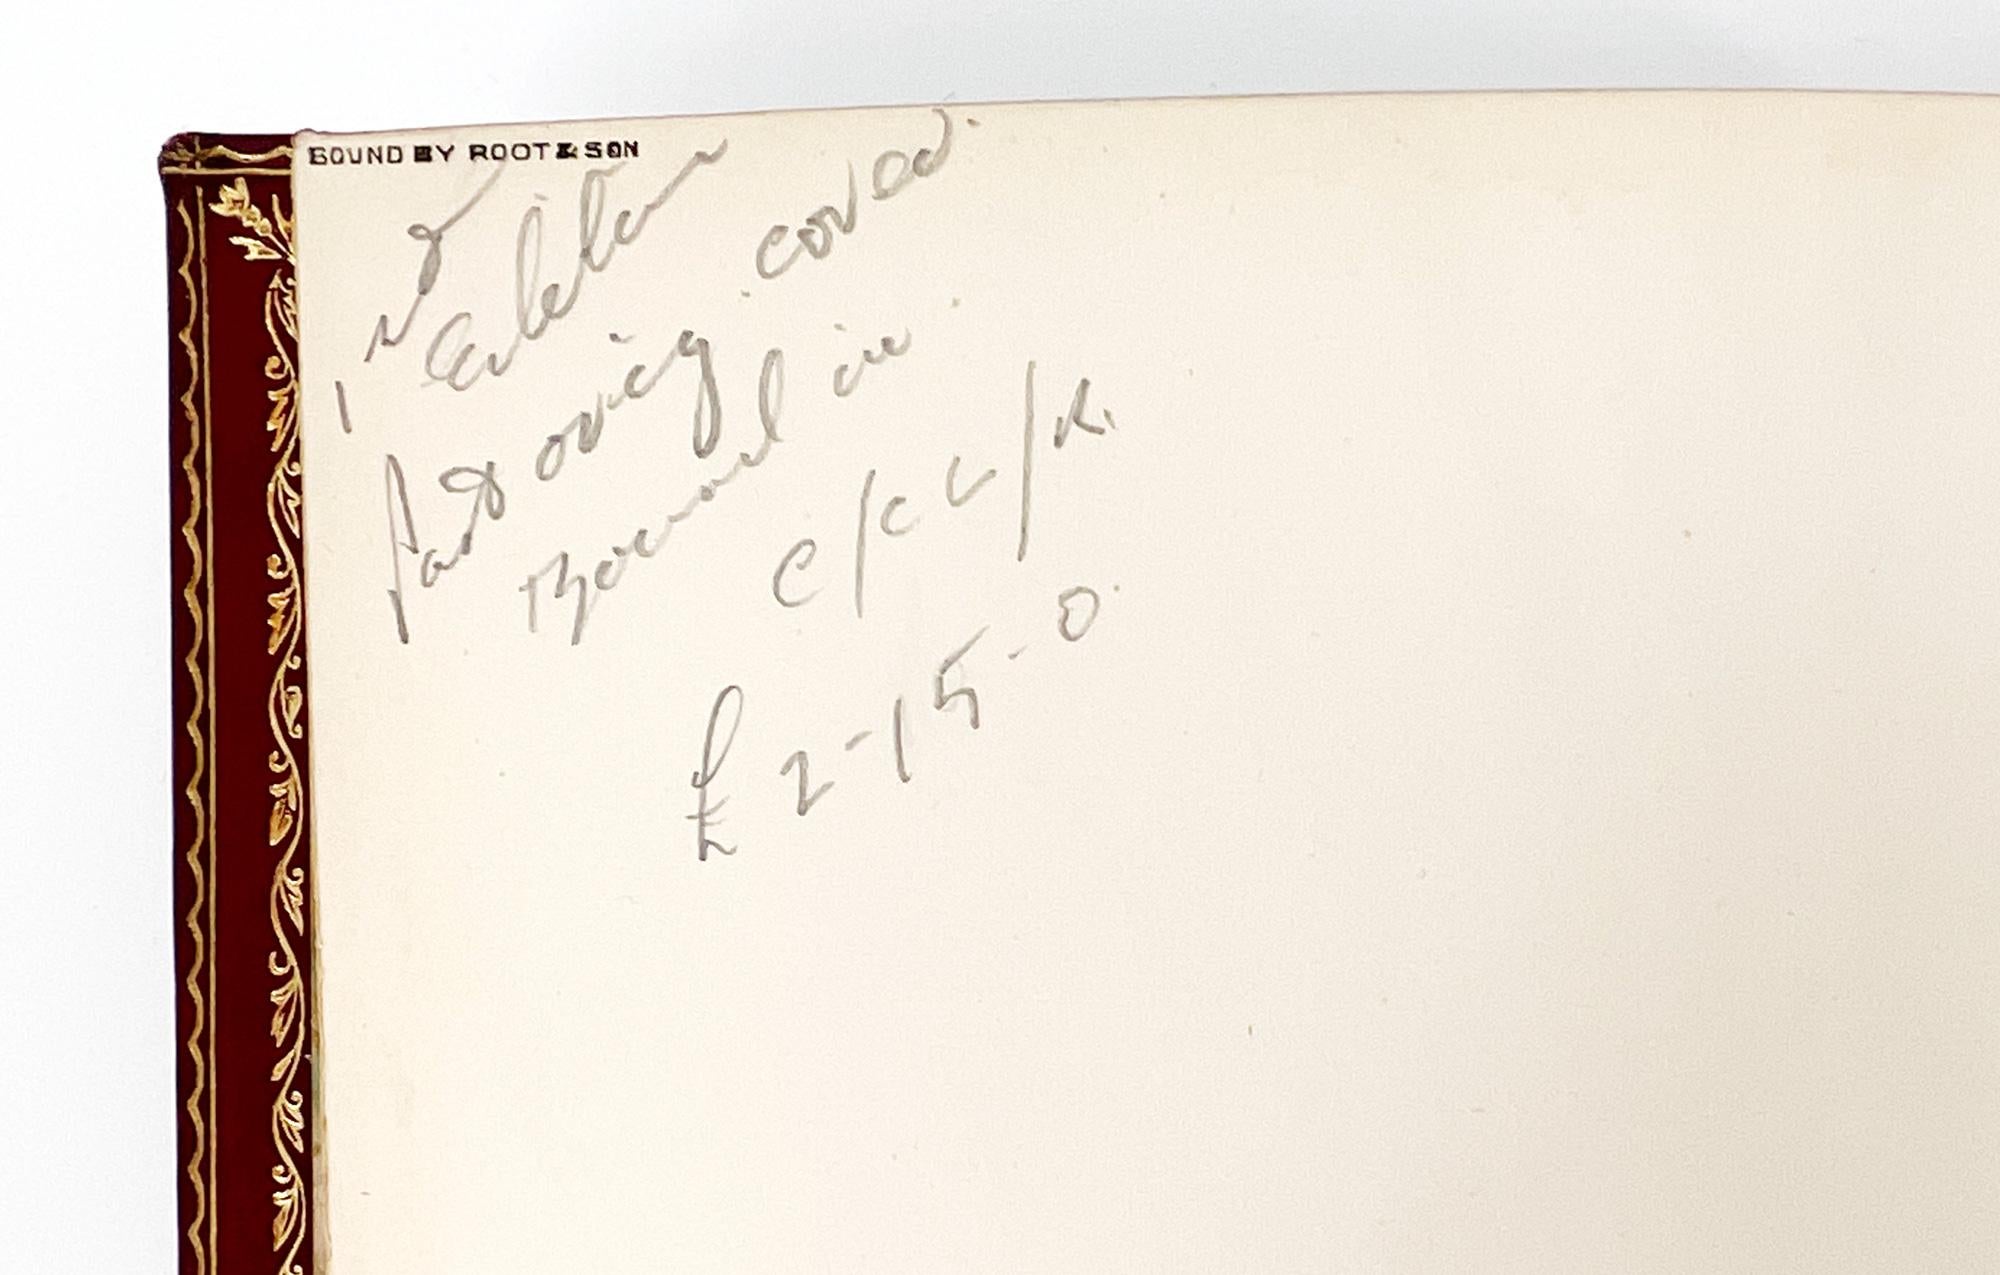 BOUND BY ROOT & SON
1st Edition
Part orig. cover
Bound in.
C/CL/R.
£2-15-0.